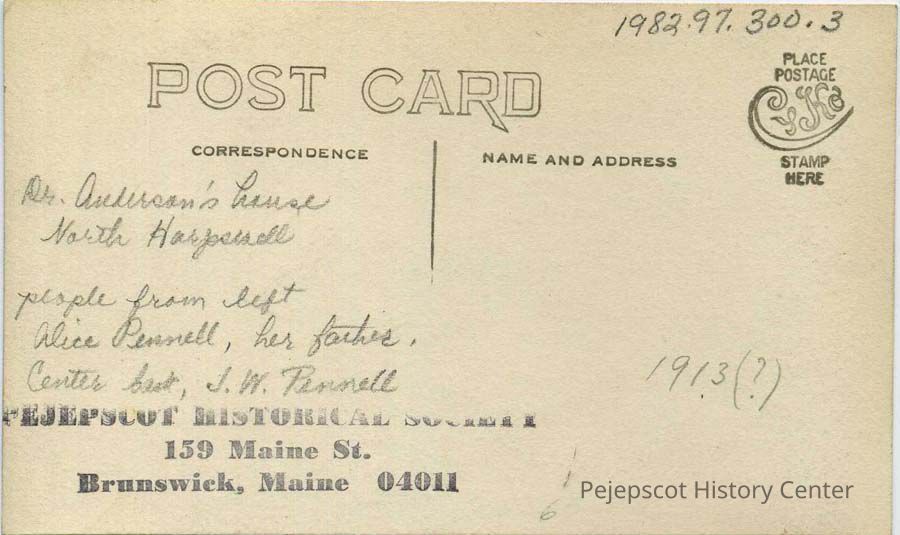 1982.97.300.3
POST CARD
PLACE
POSTAGE
CYKO
STAMP
HERE
CORRESPONDENCE
NAME AND ADDRESS
Dr. Anderson's house
North Harpswell
people from left
Alice Pennell, her father,
Center back, J. W. Pennell
1913(?)
PEJEPSCOT HISTORICAL SOCIETY
159 Maine St.
Brunswick, Maine 04011
Pejepscot History Center